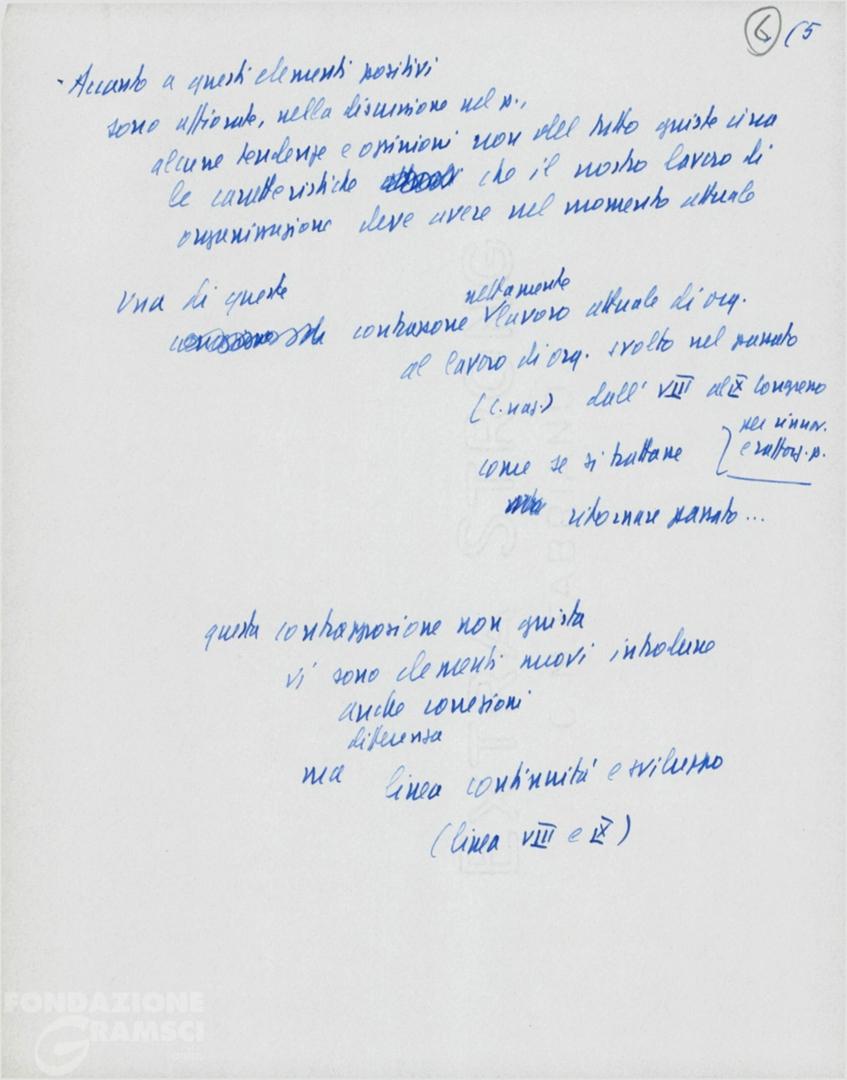 6 (5
- Accanto a questi elementi positivi
sono affiorate, nella discussione nel p.,
alcune tendenze e opinioni non del tutto giuste circa
le caratteristiche che il nostro lavoro di
organizzazione deve avere nel momento attuale
Una di queste
nettamente
contrapporre lavoro attuale di org.
al lavoro di org. svolto nel passato
(c. naz.) dall' VIII al IX Congresso
per rinnov.
e rafforz. p.
come se si trattasse
ritornare passato...
questa contrapposizione non giusta
vi sono elementi nuovi introdurre
anche correzioni
differenza
ma linea continuità e sviluppo
(linea VIII e IX)
FONDAZIONE
GRAMSCI